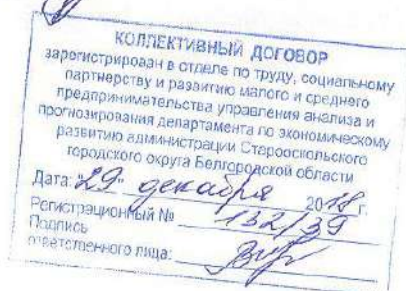 КОЛЛЕКТИВНЫЙ ДОГОВОР
зарегистрирован в отделе по труду, социальному
партнерству и развитию малого и среднего
предпринимательства управления анализа и
прогнозирования департамента по экономическому
развитию администрации Старооскольского
городского округа Белгородской области
Дата: "29" декабря 2018 г.
Регистрационный № 132/39
Подпись
ответственного лица: